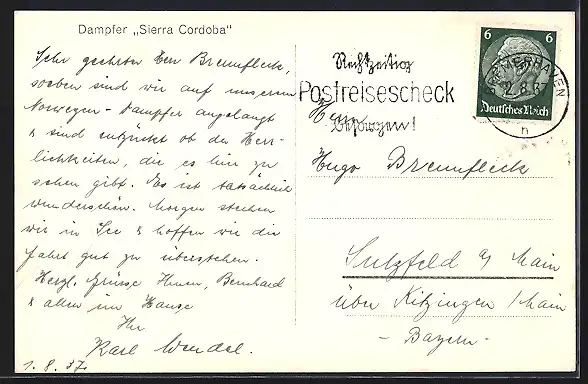 Dampfer „Sierra Cordoba"
Sehr geehrter Herr Brennfleck,
soeben sind wir auf unserem
Norwegen-Dampfer angelangt
& sind entzückt ob der Herr-
lichkeiten, die es hier zu
sehen gibt. Es ist tatsächlich
wunderschön. Morgen stechen
wir in See & hoffen wir die
Fahrt gut zu überstehen.
Herzl. Grüsse Ihnen, Bernhard
& allen im Hause
Ihr
Karl Wendel.
1. 8. 37.
Rechtzeitig
Postreisescheck
besorgen!
6 6
Deutsches Reich
BREMERHAVEN
2.8.37
n
Herrn
Hugo Brennfleck
Sulzfeld a/ Main
über Kitzingen / Main
- Bayern -